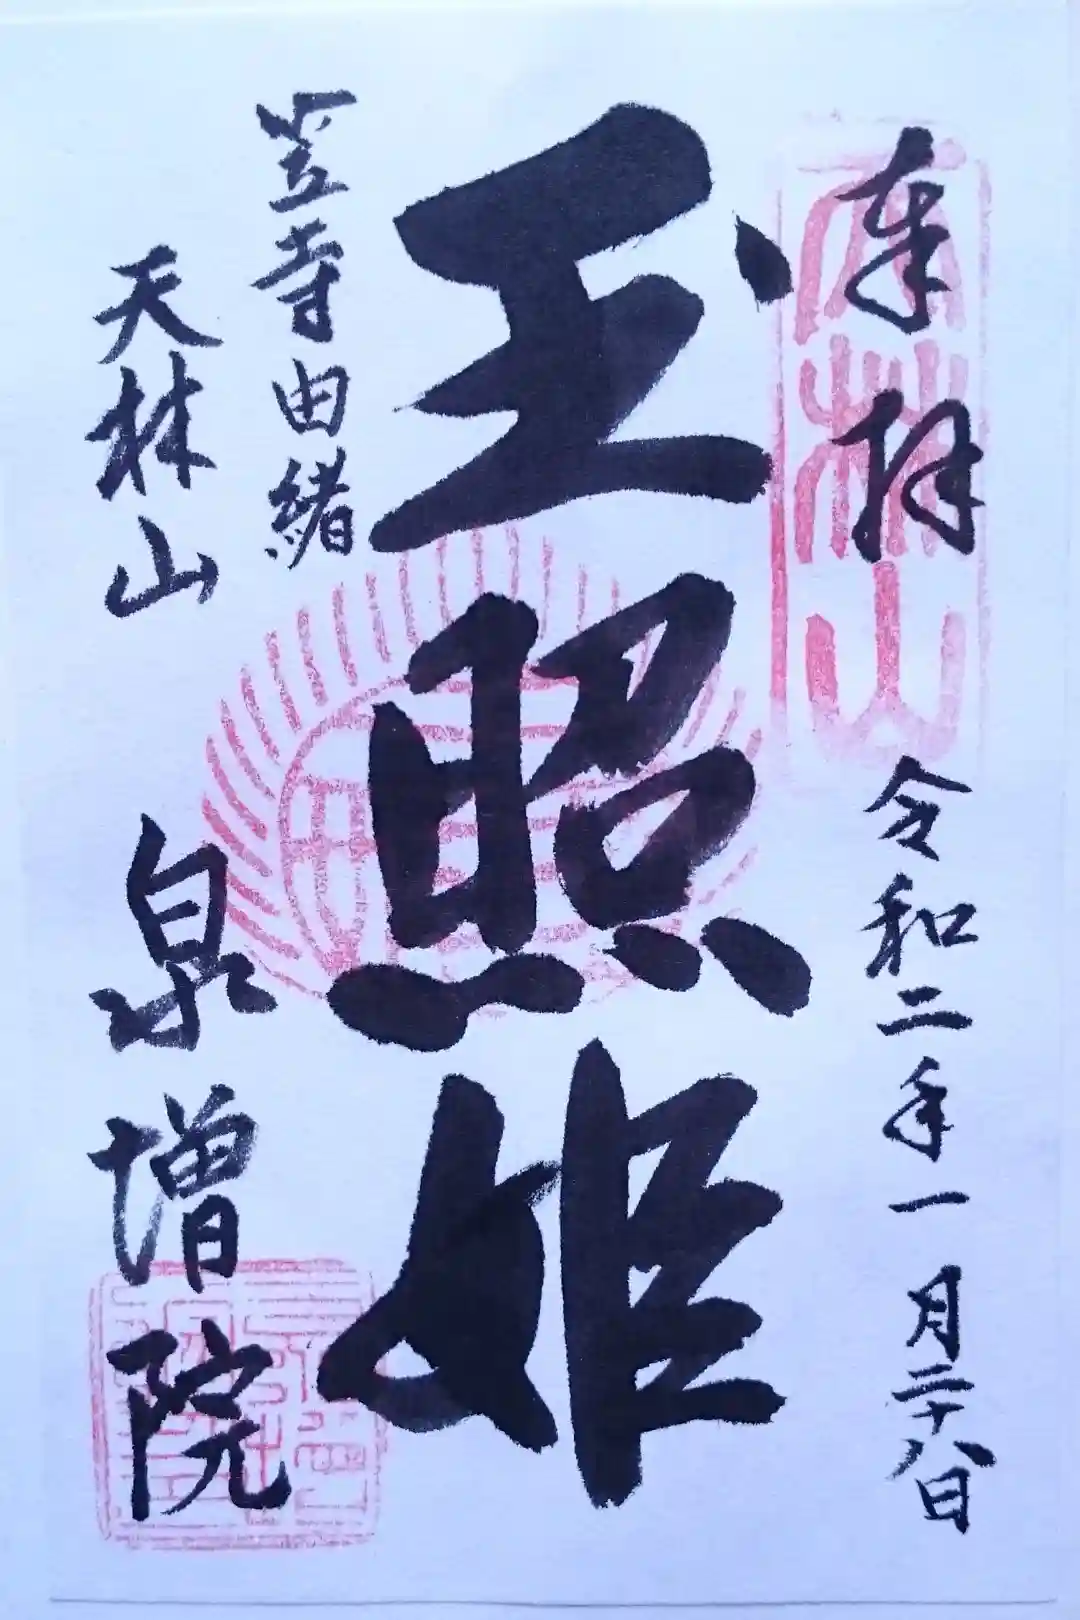 奉拝
令和二年一月二十八日
玉照姫
笠寺由緒
天林山
泉増院
天林山